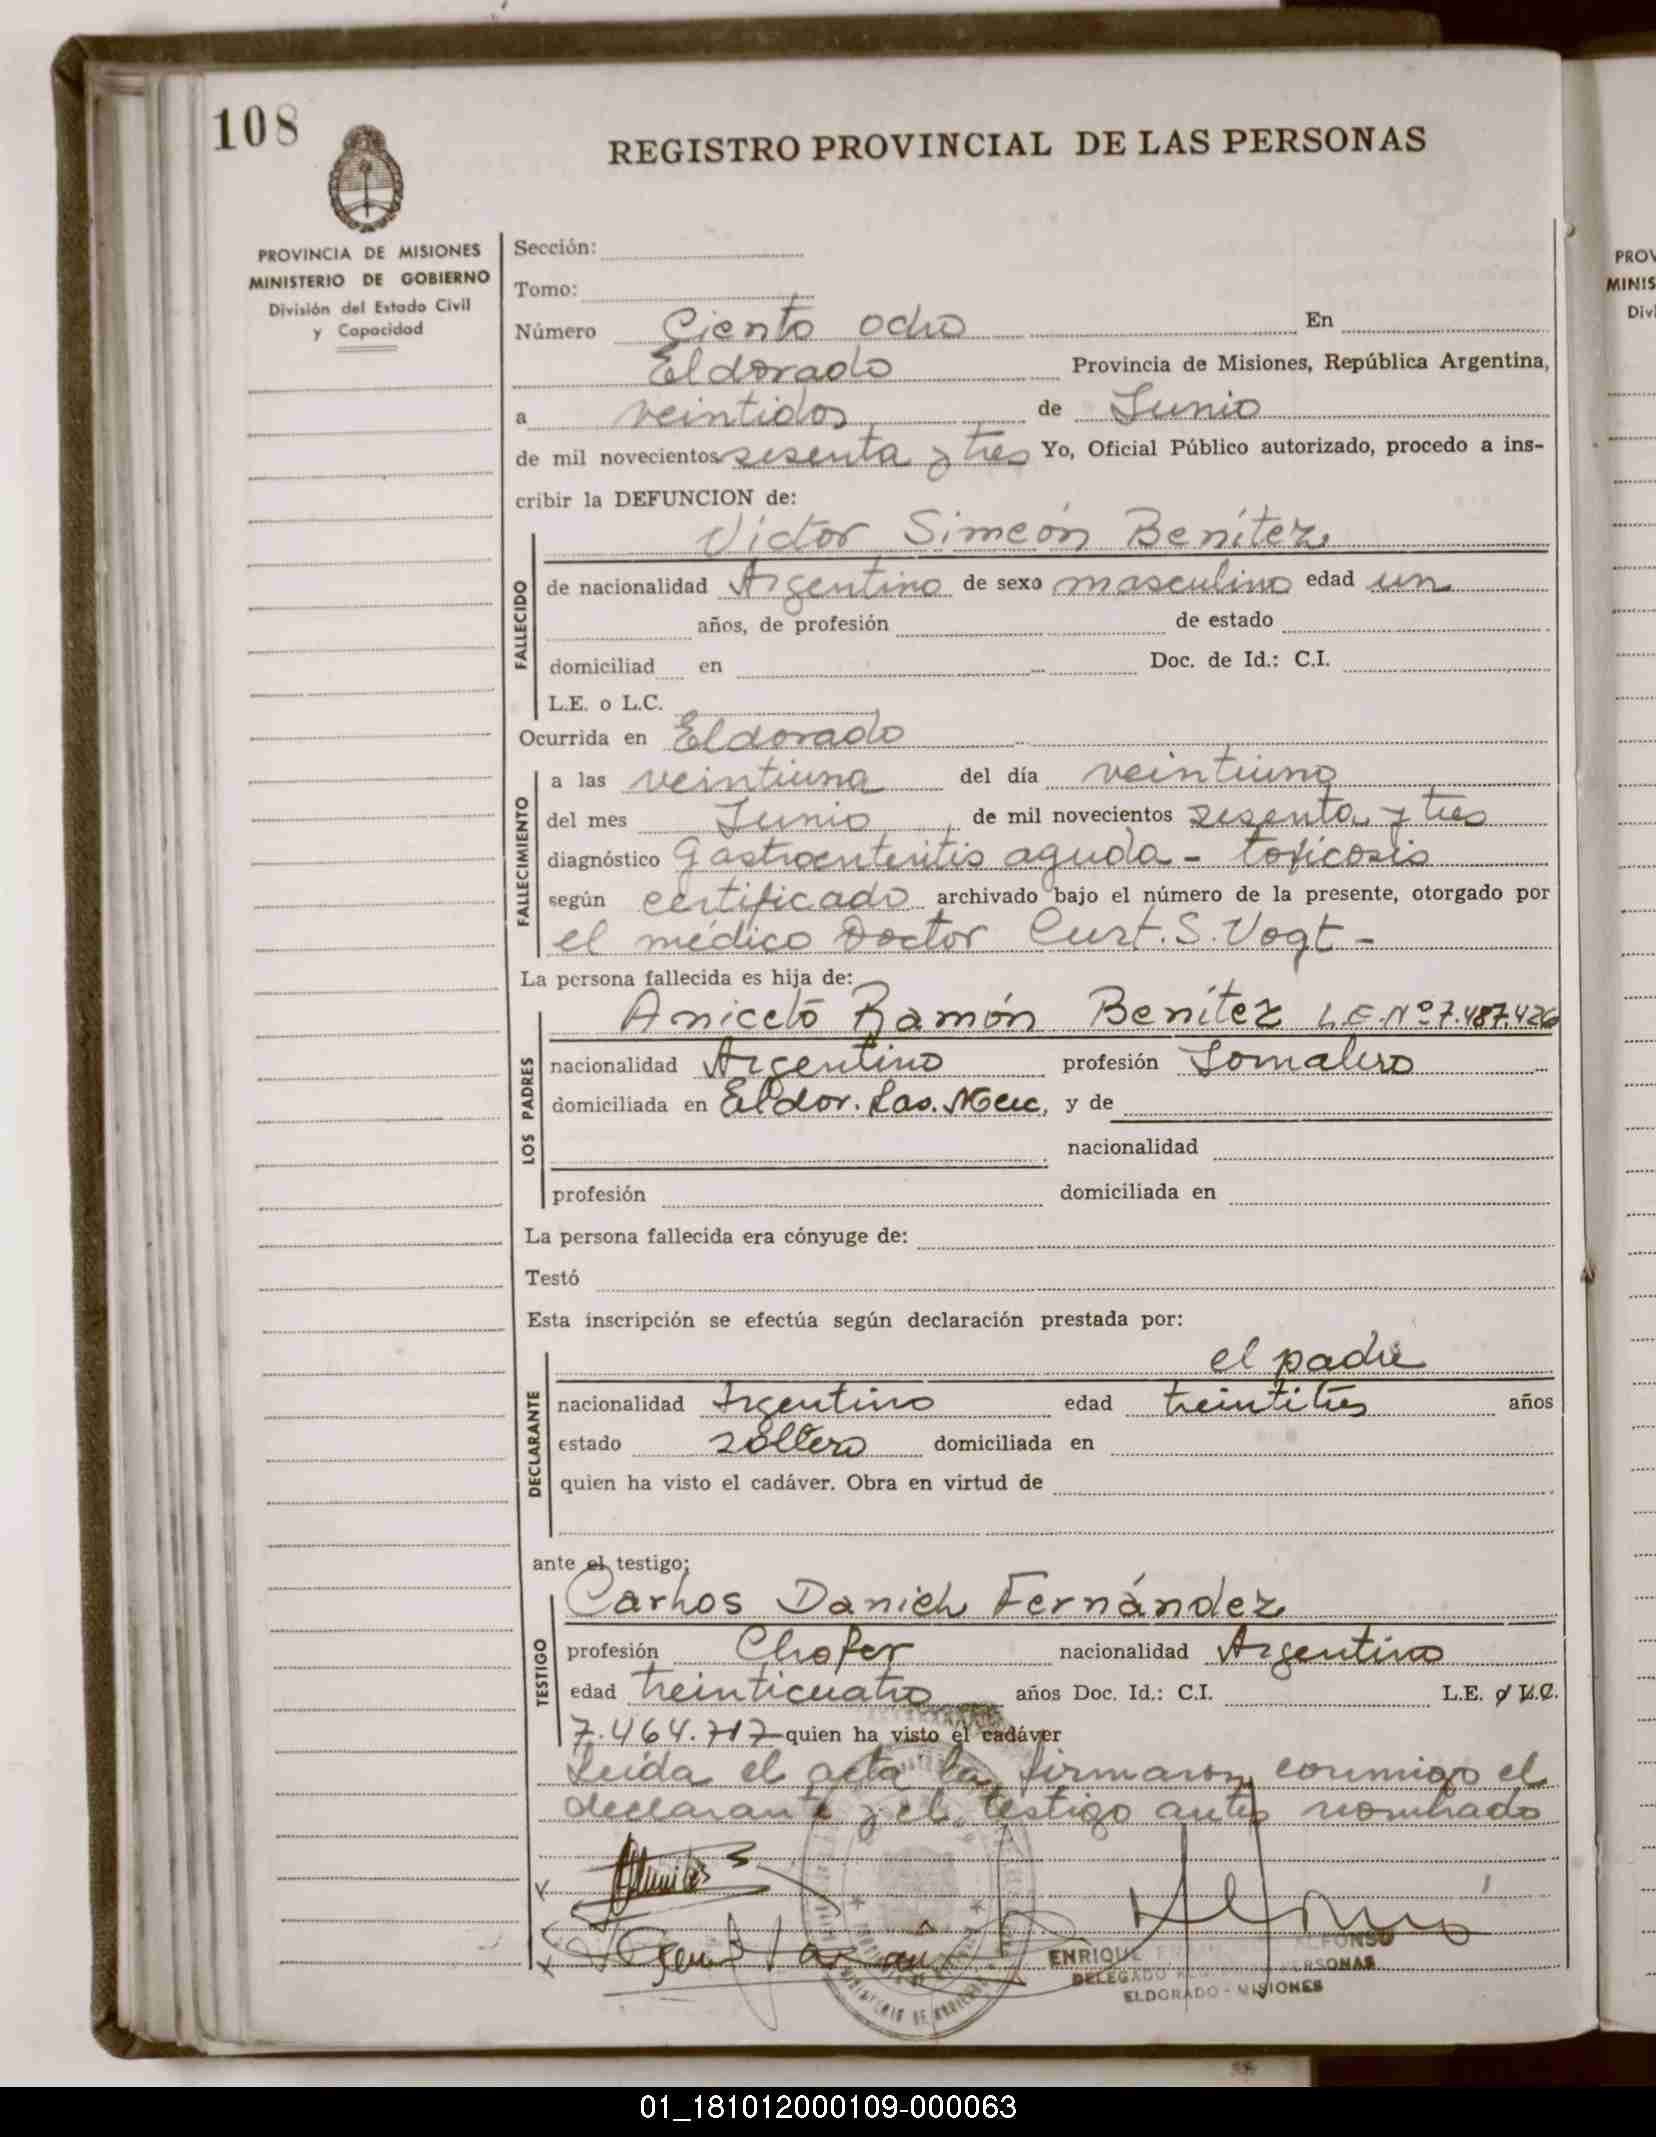 108
REGISTRO PROVINCIAL DE LAS PERSONAS
PROVINCIA DE MISIONES
MINISTERIO DE GOBIERNO
División del Estado Civil
y Capacidad
Sección:
Tomo:
Número Ciento ocho En
Eldorado Provincia de Misiones, República Argentina,
a veintidos de Junio
de mil novecientos sesenta y tres Yo, Oficial Público autorizado, procedo a ins-
cribir la DEFUNCION de:
Victor Simeón Benítez
FALLECIDO
de nacionalidad Argentino de sexo masculino edad un
años, de profesión de estado
domiciliad en Doc. de Id.: C.I.
L.E. o L.C.
Ocurrida en Eldorado
FALLECIMIENTO
a las veintiuna del día veintiuno
del mes Junio de mil novecientos sesenta y tres
diagnóstico Gastroenteritis aguda - toxicosis
según certificado archivado bajo el número de la presente, otorgado por
el médico Doctor Curt. S. Vogt -
La persona fallecida es hija de:
Aniceto Ramón Benítez L.E. Nº 7.487.426
LOS PADRES
nacionalidad Argentino profesión Jornalero
domiciliada en Eldor. y de
nacionalidad
profesión domiciliada en
La persona fallecida era cónyuge de:
Testó
Esta inscripción se efectúa según declaración prestada por:
el padre
DECLARANTE
nacionalidad Argentino edad treintitres años
estado soltero domiciliada en
quien ha visto el cadáver. Obra en virtud de
ante el testigo;
Carlos Daniel Fernández
TESTIGO
profesión Chofer nacionalidad Argentino
edad treinticuatro años Doc. Id.: C.I. L.E. o L.C.
7.464.717 quien ha visto el cadáver
Leida el acta la firmaron conmigo el
declarante y el testigo antes nombrado
ENRIQUE ALFONSO
DELEGADO REG. PERSONAS
ELDORADO - MISIONES
PROV
MINIS
Divi
01_181012000109-000063